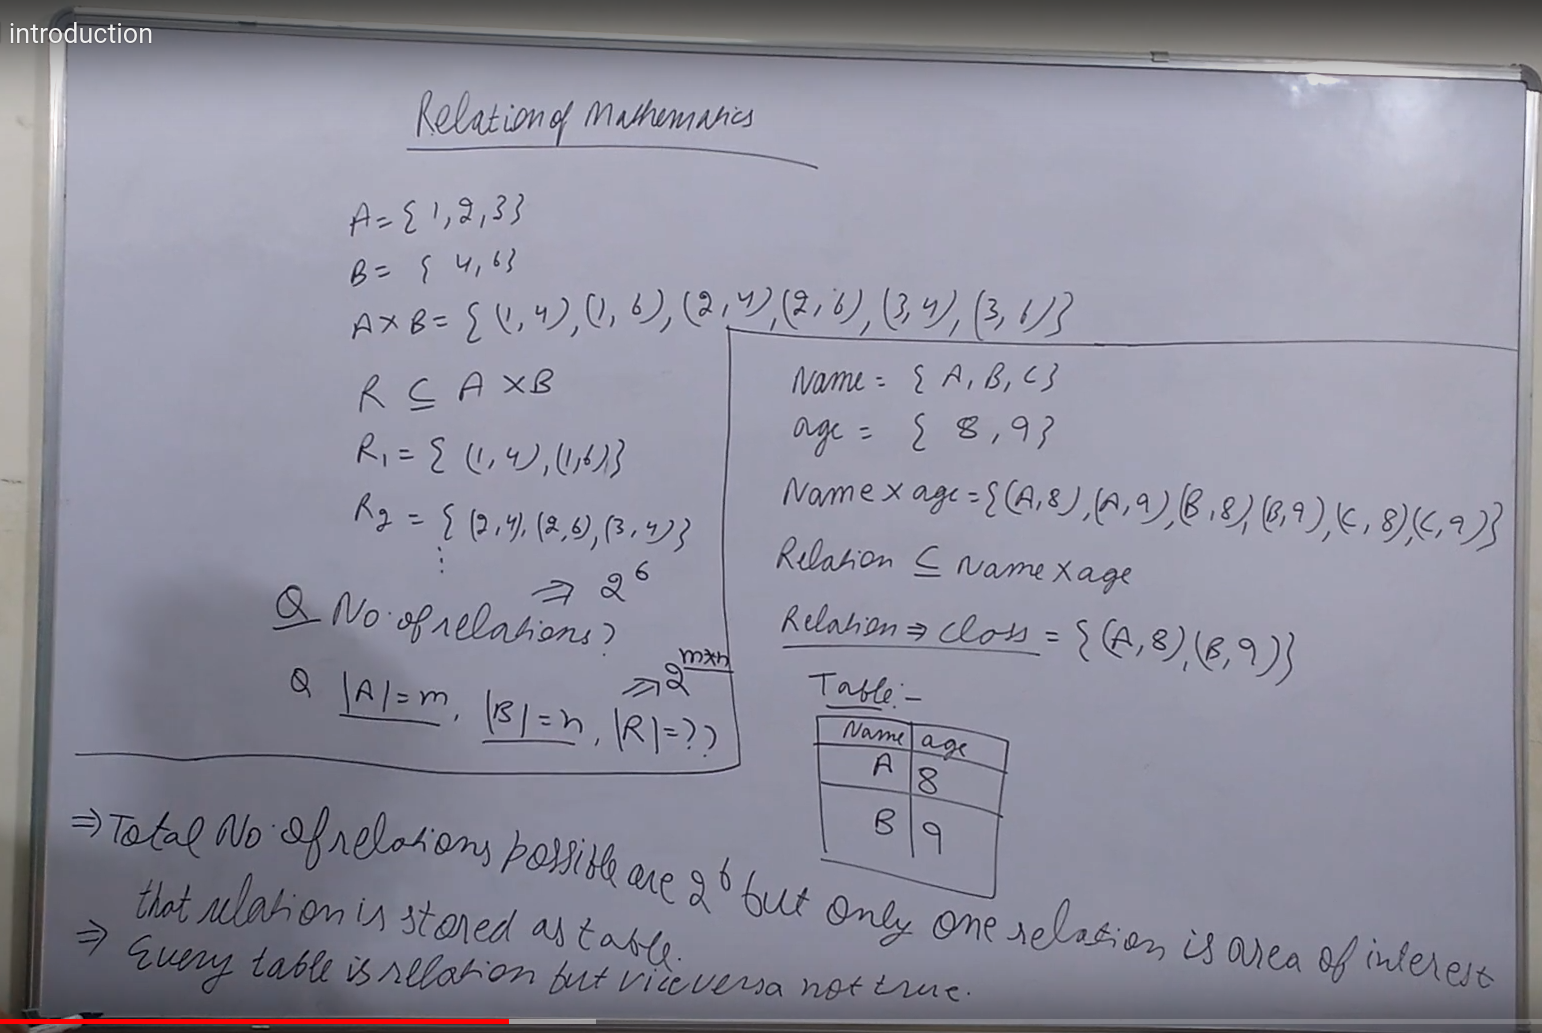 introduction
Relation of Mathematics
A = { 1, 2, 3}
B = { 4, 6}
A × B = { (1, 4), (1, 6), (2, 4), (2, 6), (3, 4), (3, 6)}
R ⊆ A × B
R₁ = { (1, 4), (1,6)}
R₂ = { (2, 4), (2, 6), (3, 4)}
⋮
⇒ 2⁶
Q No. of relations?
⇒ 2^(m×n)
Q |A| = m, |B| = n, |R| = ??
Name = { A, B, C}
age = { 8, 9}
Name × age = {(A, 8), (A, 9), (B, 8), (B, 9), (C, 8), (C, 9)}
Relation ⊆ Name × age
Relation ⇒ Class = {(A, 8), (B, 9)}
Table:-
Name age
A 8
B 9
⇒ Total No. of relations possible are 2⁶ but only one relation is area of interest
that relation is stored as table.
⇒ Every table is relation but vice versa not true.